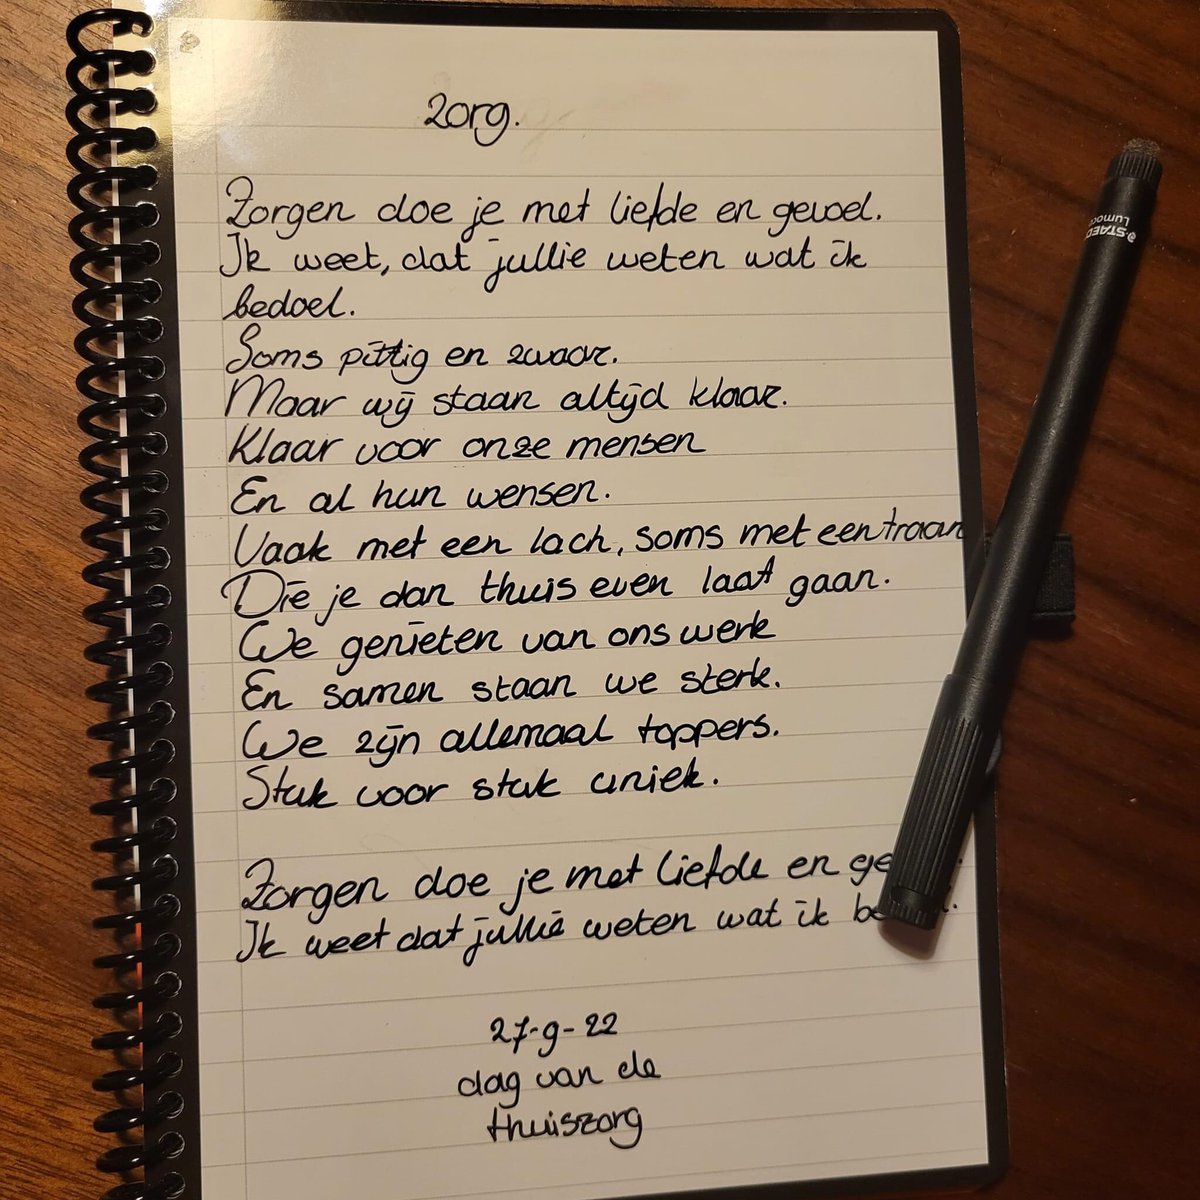 Zorg.
Zorgen doe je met liefde en gevoel.
Ik weet, dat jullie weten wat ik
bedoel.
Soms pittig en zwaar.
Maar wij staan altijd klaar.
Klaar voor onze mensen
En al hun wensen.
Vaak met een lach, soms met een traan
Die je dan thuis even laat gaan.
We genieten van ons werk
En samen staan we sterk.
We zijn allemaal toppers.
Stuk voor stuk uniek.
Zorgen doe je met liefde en
Ik weet dat jullie weten wat ik
27-9-22
dag van de
thuiszorg
STAED
Lumoc